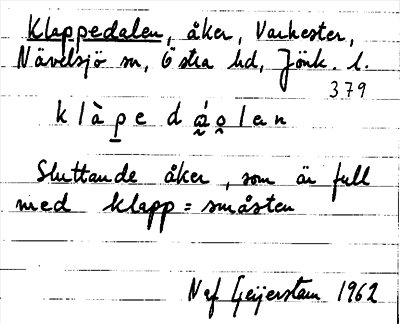 Klappedalen, åker, Varkester,
Nävelsjö sn, Östra hd, Jönk. l.
379
klàp̠e dá̰o̭len
Sluttande åker, som är full
med klapp = småsten
Naf Geijerstam 1962